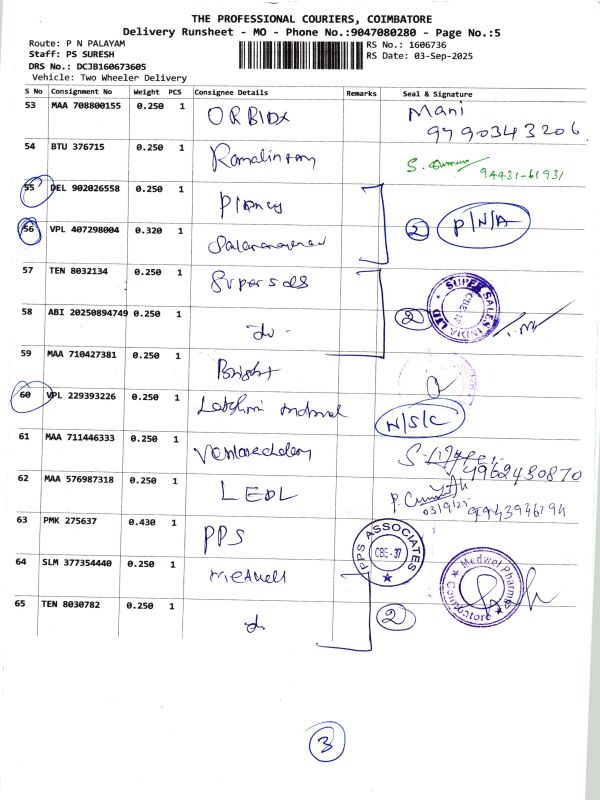 THE PROFESSIONAL COURIERS, COIMBATORE
Delivery Runsheet - MO - Phone No.:9047080280 - Page No.:5
Route: P N PALAYAM
RS No.: 1606736
Staff: PS SURESH
RS Date: 03-Sep-2025
DRS No.: DCJB160673605
Vehicle: Two Wheeler Delivery
S No Consignment No Weight PCS Consignee Details Remarks Seal & Signature
53 MAA 708800155 0.250 1 ORBIDX Mani
9790343206
54 BTU 376715 0.250 1
94431-61931
55 DEL 902026558 0.250 1
56 VPL 407298004 0.320 1 2 P/N/A
57 TEN 8032134 0.250 1 Super sales
SUPER SALES INDIA LTD
58 ABI 20250894749 0.250 1 do 2
59 MAA 710427381 0.250 1 Bright
60 VPL 229393226 0.250 1 Lakshmi N/S/C
61 MAA 711446333 0.250 1
62 MAA 576987318 0.250 1 LEDL
63 PMK 275637 0.430 1 PPS
PPS ASSOCIATES
CBE-37
64 SLM 377354440 0.250 1 Medwell
Medwel Pharma Coimbatore
65 TEN 8030782 0.250 1 do 2
3